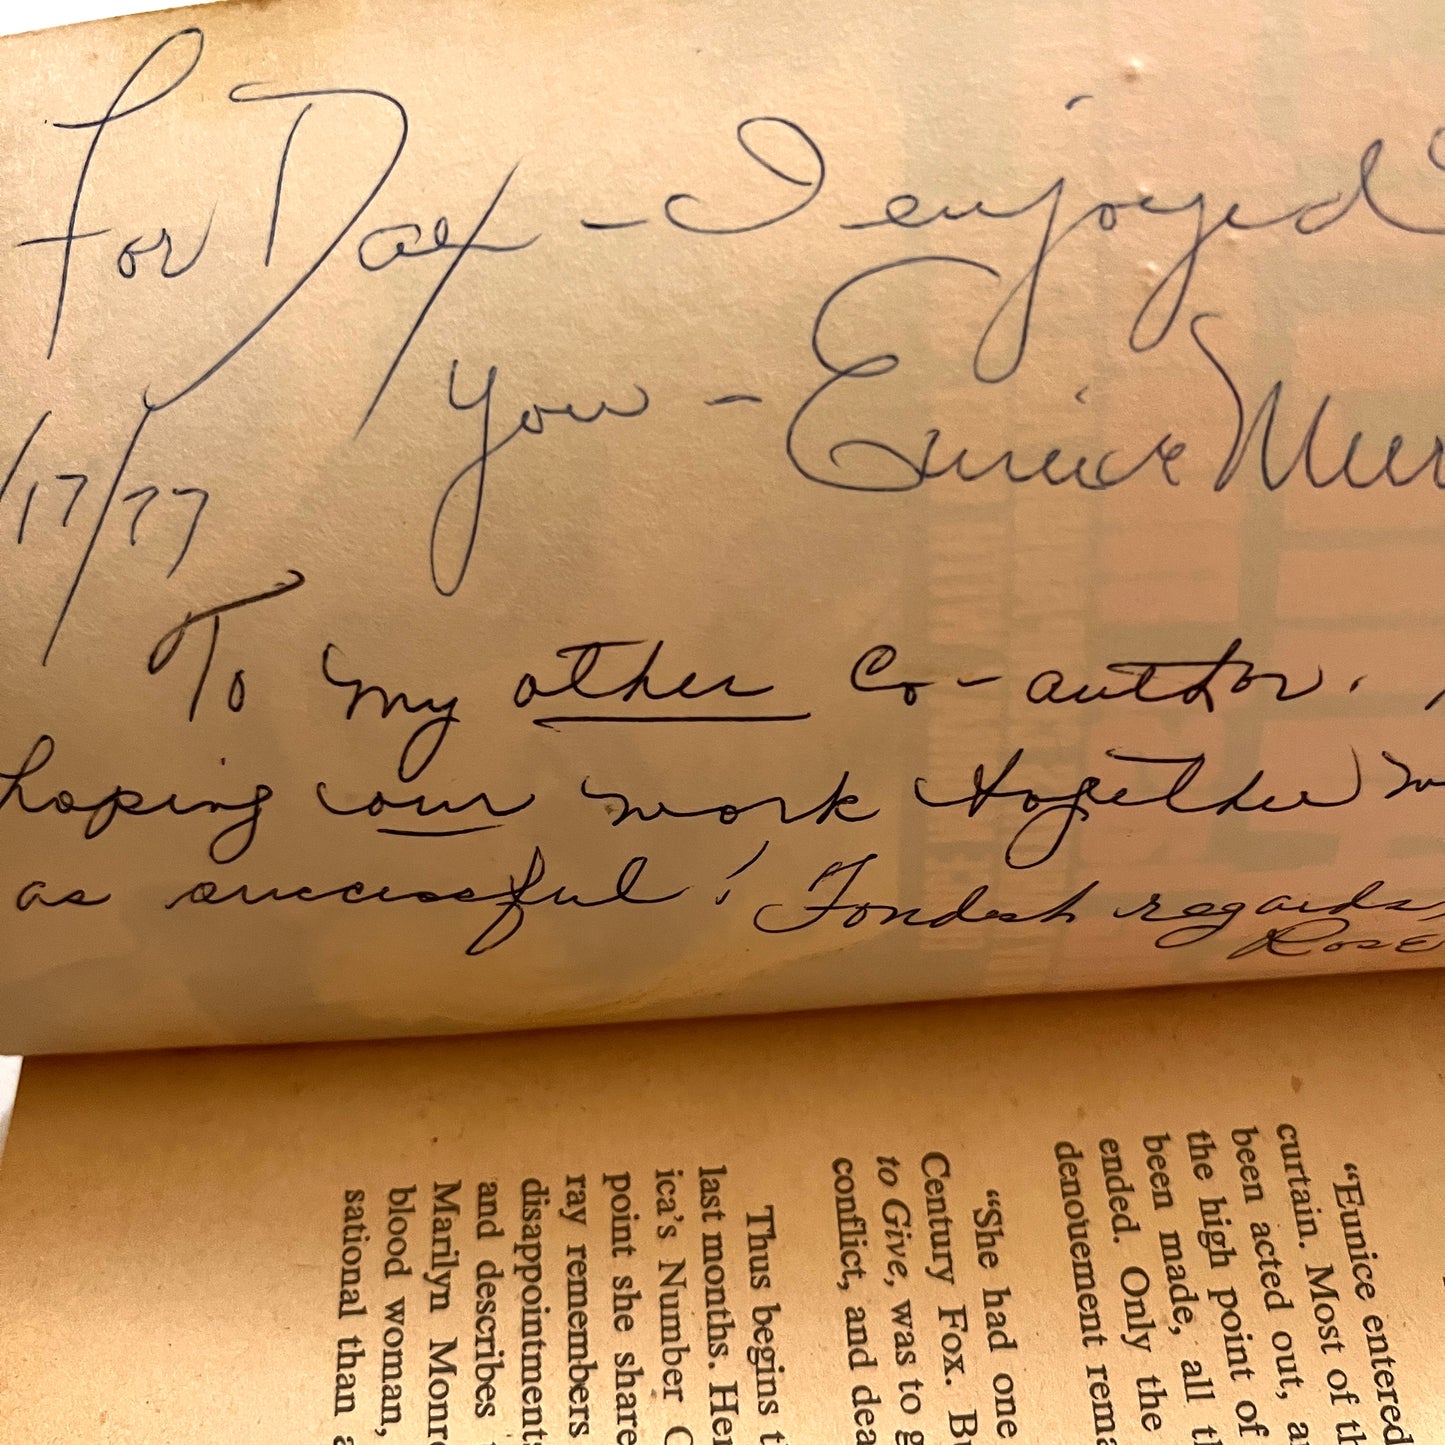 For - I enjoyed
you - Eunice Mur
/17/77
To my other co-author.
hoping our work together
as successful! Fondest regards,
Rose
“Eunice entered
curtain. Most of th
been acted out, a
the high point of
been made, all th
ended. Only the
denouement rema
“She had one
Century Fox. Bu
to Give, was to g
conflict, and dea
Thus begins t
last months. Her
ica’s Number
point she share
ray remembers
disappointments
and describes
Marilyn Monr
blood woman,
sational than a